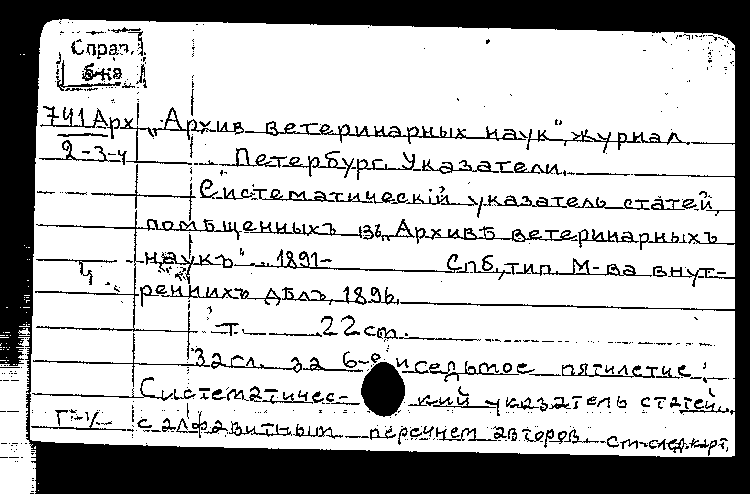 Справ.
б-ка
741 Арх
2-3-4
„Архив ветеринарных наук", журнал.
Петербург. Указатели.
Систематическій указатель статей,
помѣщенныхъ въ „Архивѣ ветеринарныхъ
наукъ" .. 1891- Спб., тип. М-ва внут-
реннихъ дѣлъ, 1896.
т. 22 cm.
Загл. за 6-е и седьмое пятилетие:
Систематичес- кий указатель статей...
с алфавитным перечнем авторов. см. след. карт.